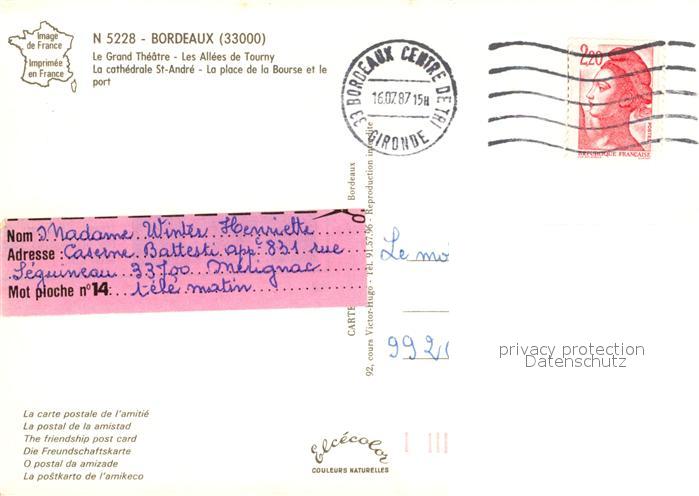 Image
de France
Imprimée
en France
N 5228 - BORDEAUX (33000)
Le Grand Théâtre - Les Allées de Tourny
La cathédrale St-André - La place de la Bourse et le
port
33 BORDEAUX CENTRE DE TRI
16.07.87 15H
GIRONDE
2,20
POSTES
REPUBLIQUE FRANÇAISE
Nom : Madame Winter Henriette
Adresse : Caserne Battesti appt 831 rue
Séguineau 33700 Mérignac
Mot pioche n°14 : télé matin
CARTE
92, cours Victor-Hugo - Tél. 91.57.96 - Reproduction interdite
Bordeaux
Le mo
992
privacy protection
Datenschutz
La carte postale de l'amitié
La postal de la amistad
The friendship post card
Die Freundschaftskarte
O postal da amizade
La poŝtkarto de l'amikeco
Elcécolor
COULEURS NATURELLES